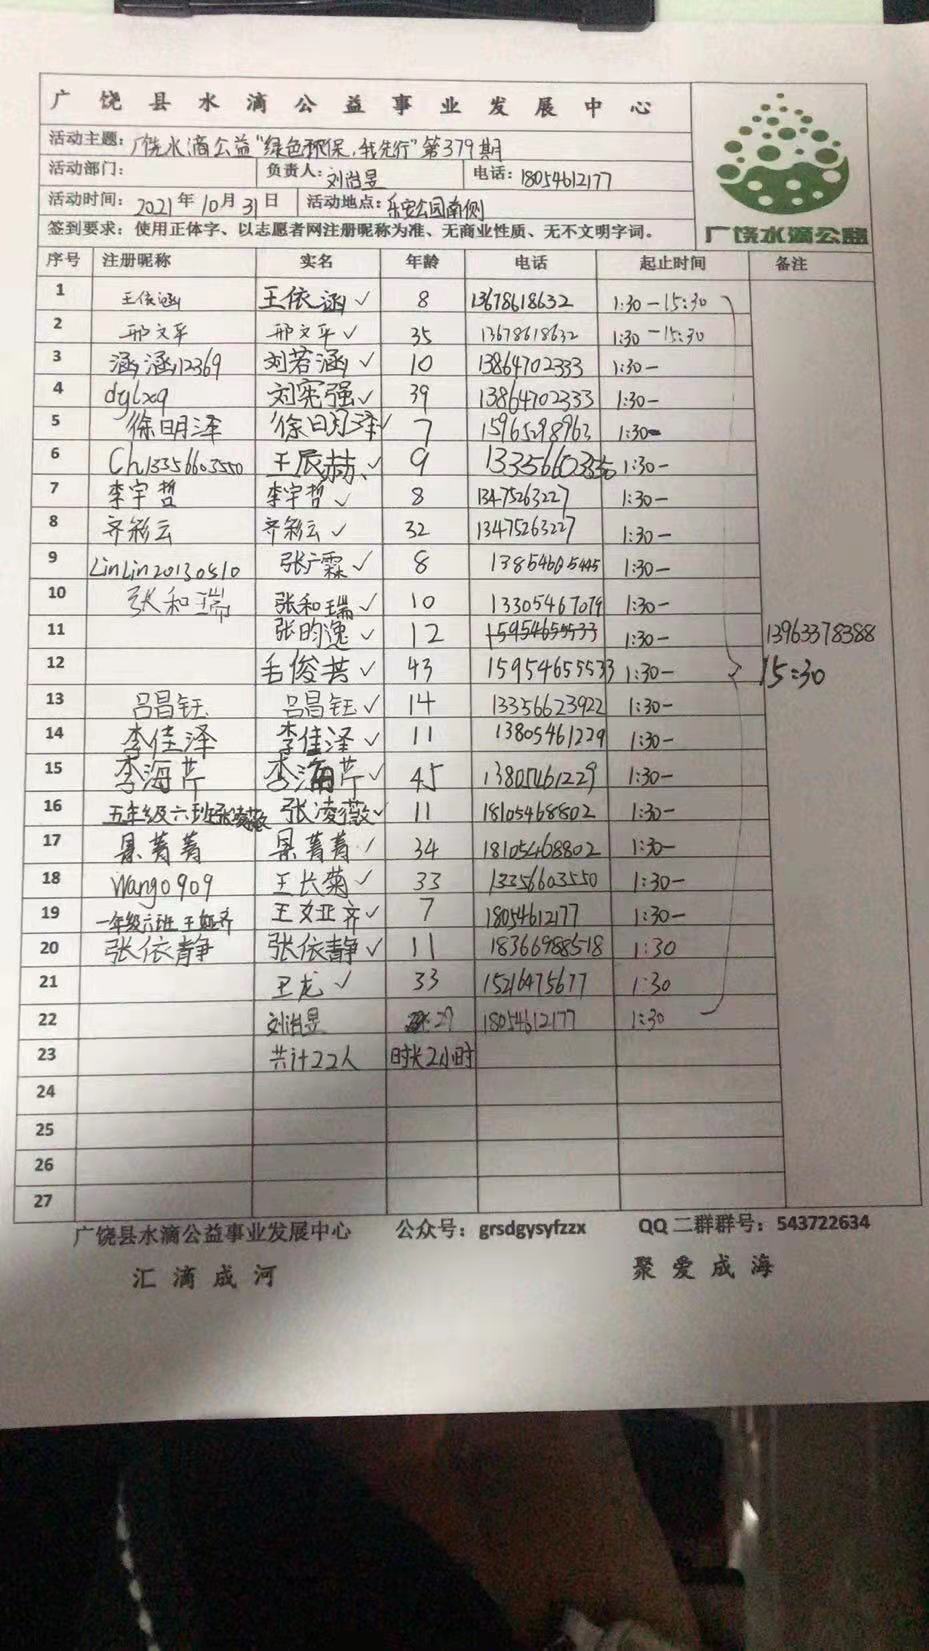 广饶县水滴公益事业发展中心
活动主题：广饶水滴公益"绿色环保，我先行"第379期
活动部门： 负责人：刘浩昱 电话：18054612177
活动时间：2021年10月31日 活动地点：乐安公园南侧
签到要求：使用正体字、以志愿者网注册昵称为准、无商业性质、无不文明字词。
广饶水滴公益
序号 注册昵称 实名 年龄 电话 起止时间 备注
1 王依涵 王依涵✓ 8 13678618632 1:30-15:30
2 邢文平 邢文平✓ 35 13678618632 1:30-15:30
3 涵涵12369 刘若涵✓ 10 13864702333 1:30-
4 dylxq 刘宪强✓ 39 13864702333 1:30-
5 徐明泽 徐明泽✓ 7 15965298963 1:30-
6 Ch13356603550 王辰赫✓ 9 13356603550 1:30-
7 李宇哲 李宇哲✓ 8 13475263227 1:30-
8 齐彩云 齐彩云✓ 32 13475263227 1:30-
9 LinLin20130510 张广霖✓ 8 13854605445 1:30-
10 张和瑞 张和瑞✓ 10 13305467079 1:30-
11 张昀逸✓ 12 15954655533 1:30- 13963378388
12 毛俊芸✓ 43 15954655533 1:30- 15:30
13 吕昌钰 吕昌钰✓ 14 13356623922 1:30-
14 李佳泽 李佳泽✓ 11 13805461229 1:30-
15 李海芹 李海芹✓ 45 13805461229 1:30-
16 五年级六班张凌薇 张凌薇✓ 11 18105468802 1:30-
17 景菁菁 景菁菁✓ 34 18105468802 1:30-
18 Wang0909 王长菊✓ 33 13356603550 1:30-
19 一年级六班 王姃齐 王姃齐✓ 7 18054612177 1:30-
20 张依静 张依静✓ 11 18366988518 1:30
21 卫龙✓ 33 15216475677 1:30
22 刘浩昱 29 18054612177 1:30
23 共计22人 时长2小时
24
25
26
27
广饶县水滴公益事业发展中心 公众号：grsdgysyfzzx QQ二群群号：543722634
汇滴成河 聚爱成海